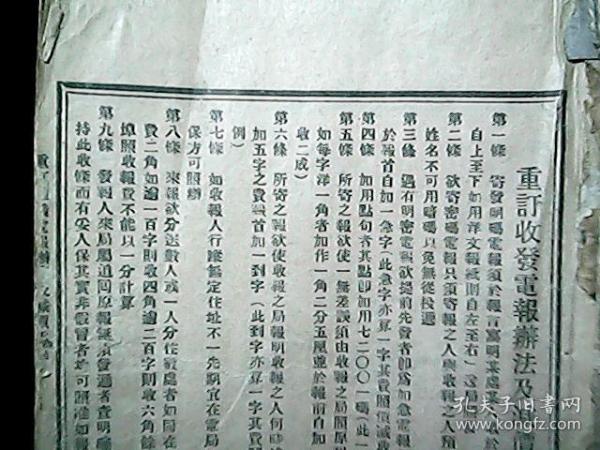 重訂收發電報辦法及
第一條 寄發明碼電報須於報首寫明某處某
自上至下如用洋文報紙則自左至右
第二條 欲寄密碼電報只須寄報之人與收報之人預
姓名不可用暗碼以免無從投遞
第三條 遇有明密電報欲提前先發者即爲加急電報
於報首自加一急字此急字亦算一字其費照價
第四條 加用點句者其點即加用七二〇〇一碼此一
第五條 所寄之報欲使一無差誤須由收報之局照原
如每字洋一角者加作一角二分五厘並於報前自加
收二成)
第六條 所寄之報欲使收報之局報明收報之人何時
加五字之費報首加一到字(此到字亦算一字其費
例)
第七條 如收報人行蹤無定住址不一先期宜在電局
保方可照辦
第八條 來報欲分送數人或一人分住數處者如同在
費二角如逾一百字則收四角逾二百字則收六角餘
埠照收報費不能以一分計算
第九條 發報人來局追回原報
持此收條而有妥人保其實非假冒者均可照准如報
孔夫子旧书网
book.kongfz.com